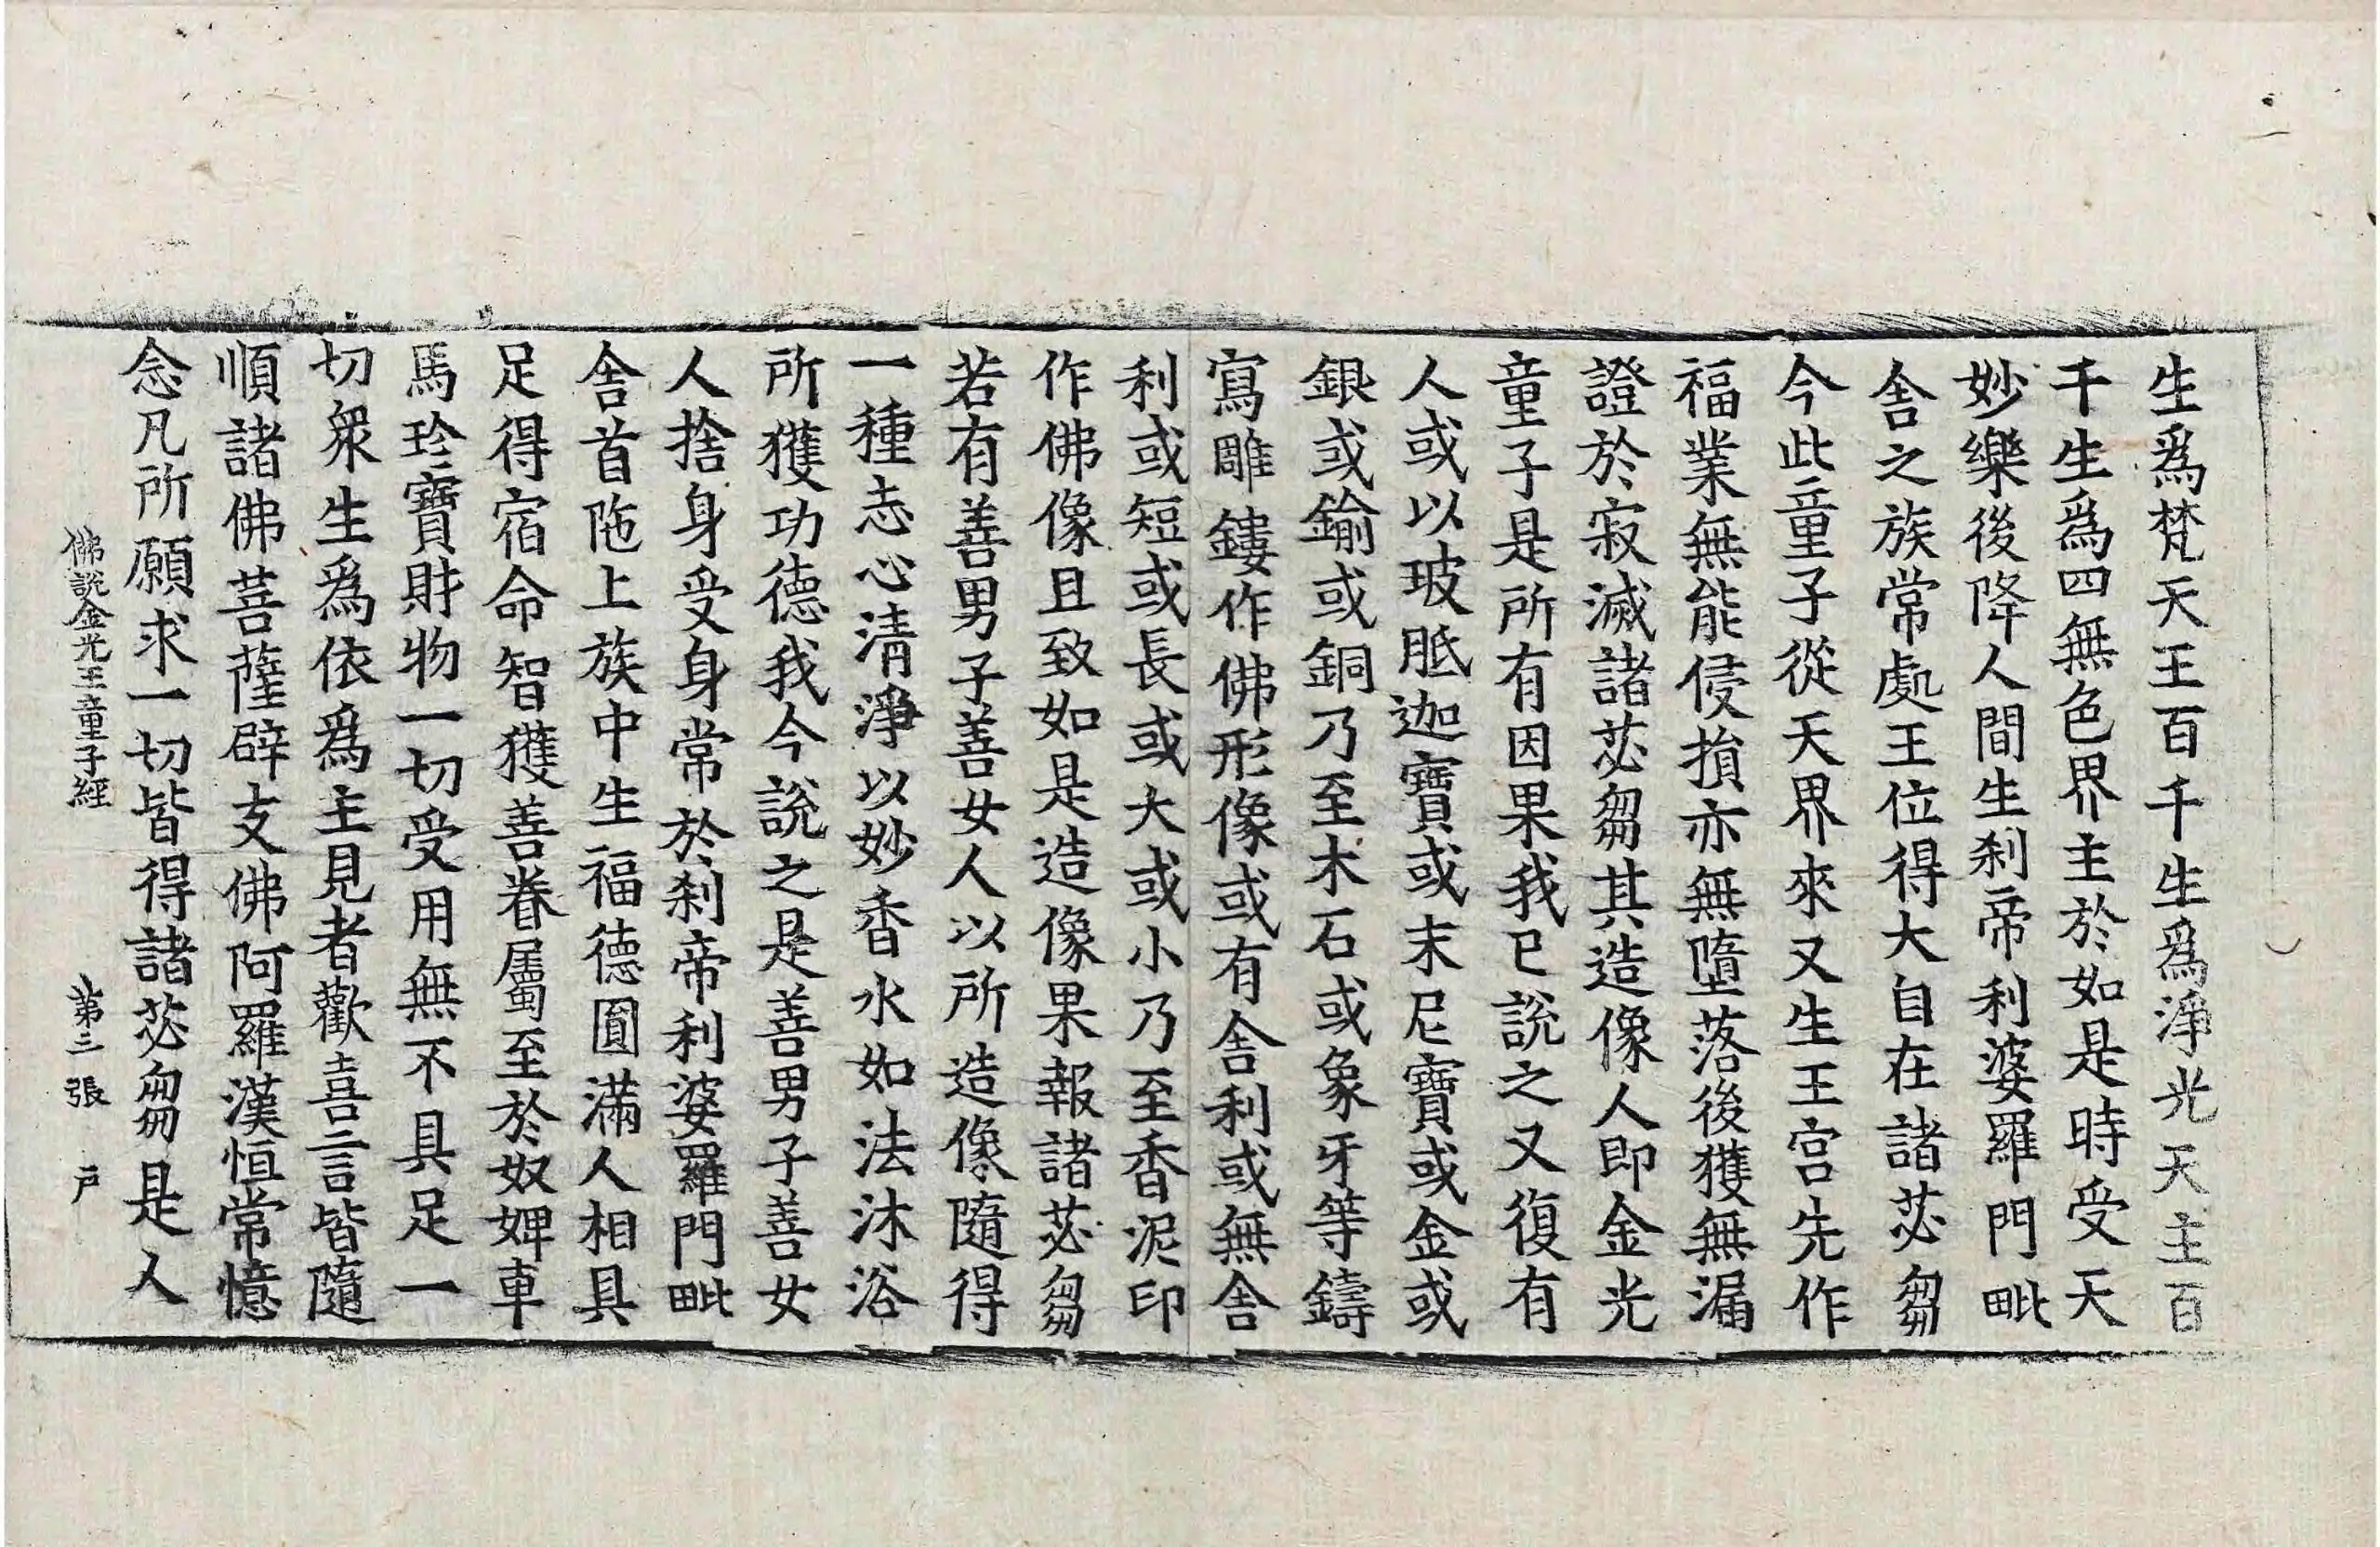 生爲梵天王百千生爲淨光天主百
千生爲四無色界主於如是時受天
妙樂後降人間生刹帝利婆羅門毗
舍之族常處王位得大自在諸苾芻
今此童子從天界來又生王宫先作
福業無能侵損亦無墮落後獲無漏
證於寂滅諸苾芻其造像人即金光
童子是所有因果我已說之又復有
人或以玻胝迦寶或末尼寶或金或
銀或鍮或銅乃至木石或象牙等鑄
寫雕鏤作佛形像或有舍利或無舍
利或短或長或大或小乃至香泥印
作佛像且致如是造像果報諸苾芻
若有善男子善女人以所造像隨得
一種志心清淨以妙香水如法沐浴
所獲功德我今說之是善男子善女
人捨身受身常於刹帝利婆羅門毗
舍首陁上族中生福德圓滿人相具
足得宿命智獲善眷屬至於奴婢車
馬珍寶財物一切受用無不具足一
切衆生爲依爲主見者歡喜言皆隨
順諸佛菩薩辟支佛阿羅漢恒常憶
念凡所願求一切皆得諸苾芻是人
佛說金光王童子經 第三張 戶